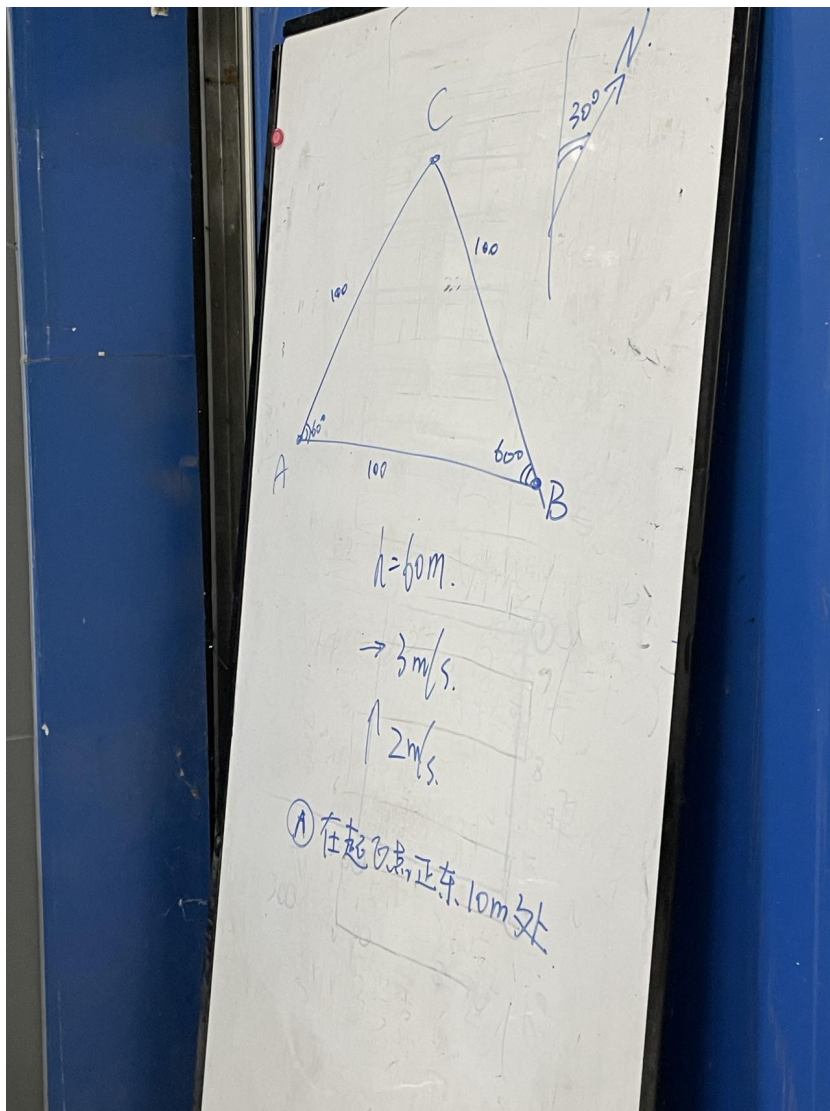 N.
30°
C
100
100
60°
60°
A
100
B
h=60m.
→ 3m/s.
↑ 2m/s.
Ⓐ在起飞点正东10m处